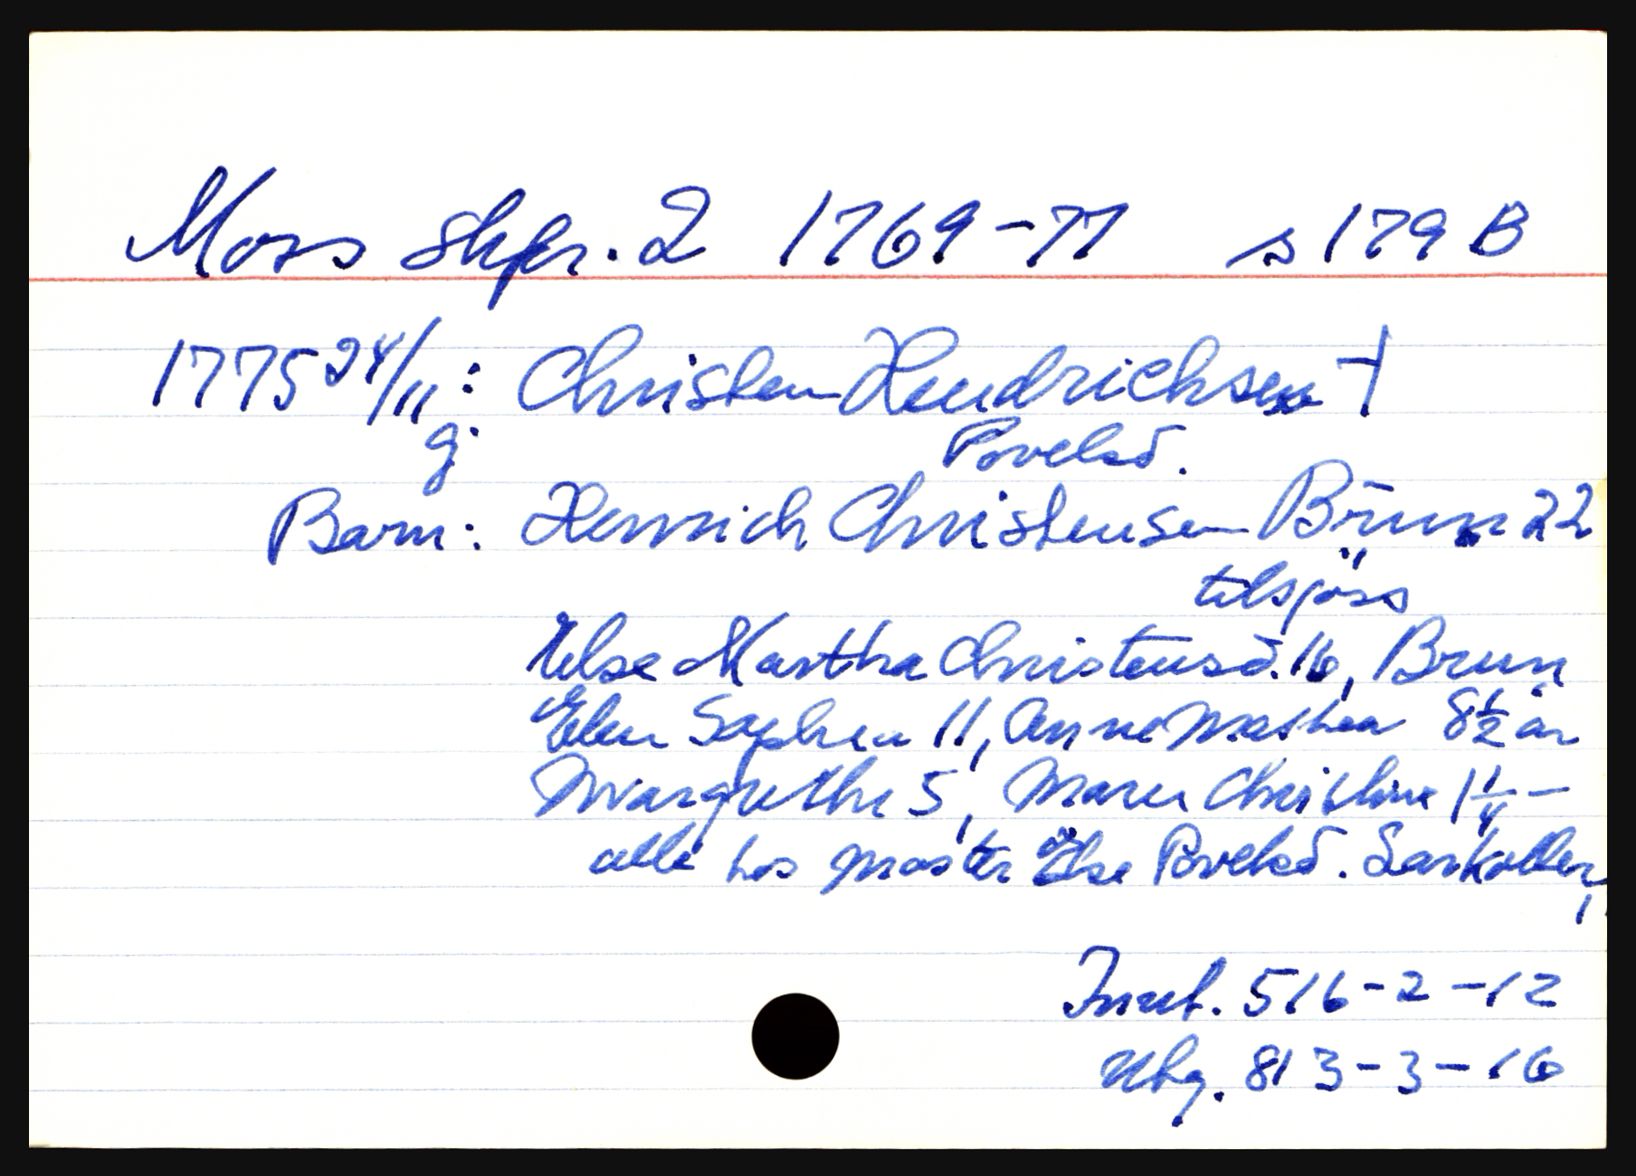 Moss skfr. 2 1769-77 s 179 B
1775 24/11: Christen Hendrichsen †
g. Povelsd.
Barn: Henrich Christensen Brun 22
tilsjøss
Else Martha Christensd. 16, Brun
Elen Sophia 11, Anne Mathea 8½ år
Margrethe 5, Maren Christine 1¼ -
alle hos moster Else Povelsd. Larkollen,
Innb. 516-2-12
Utg. 813-3-16